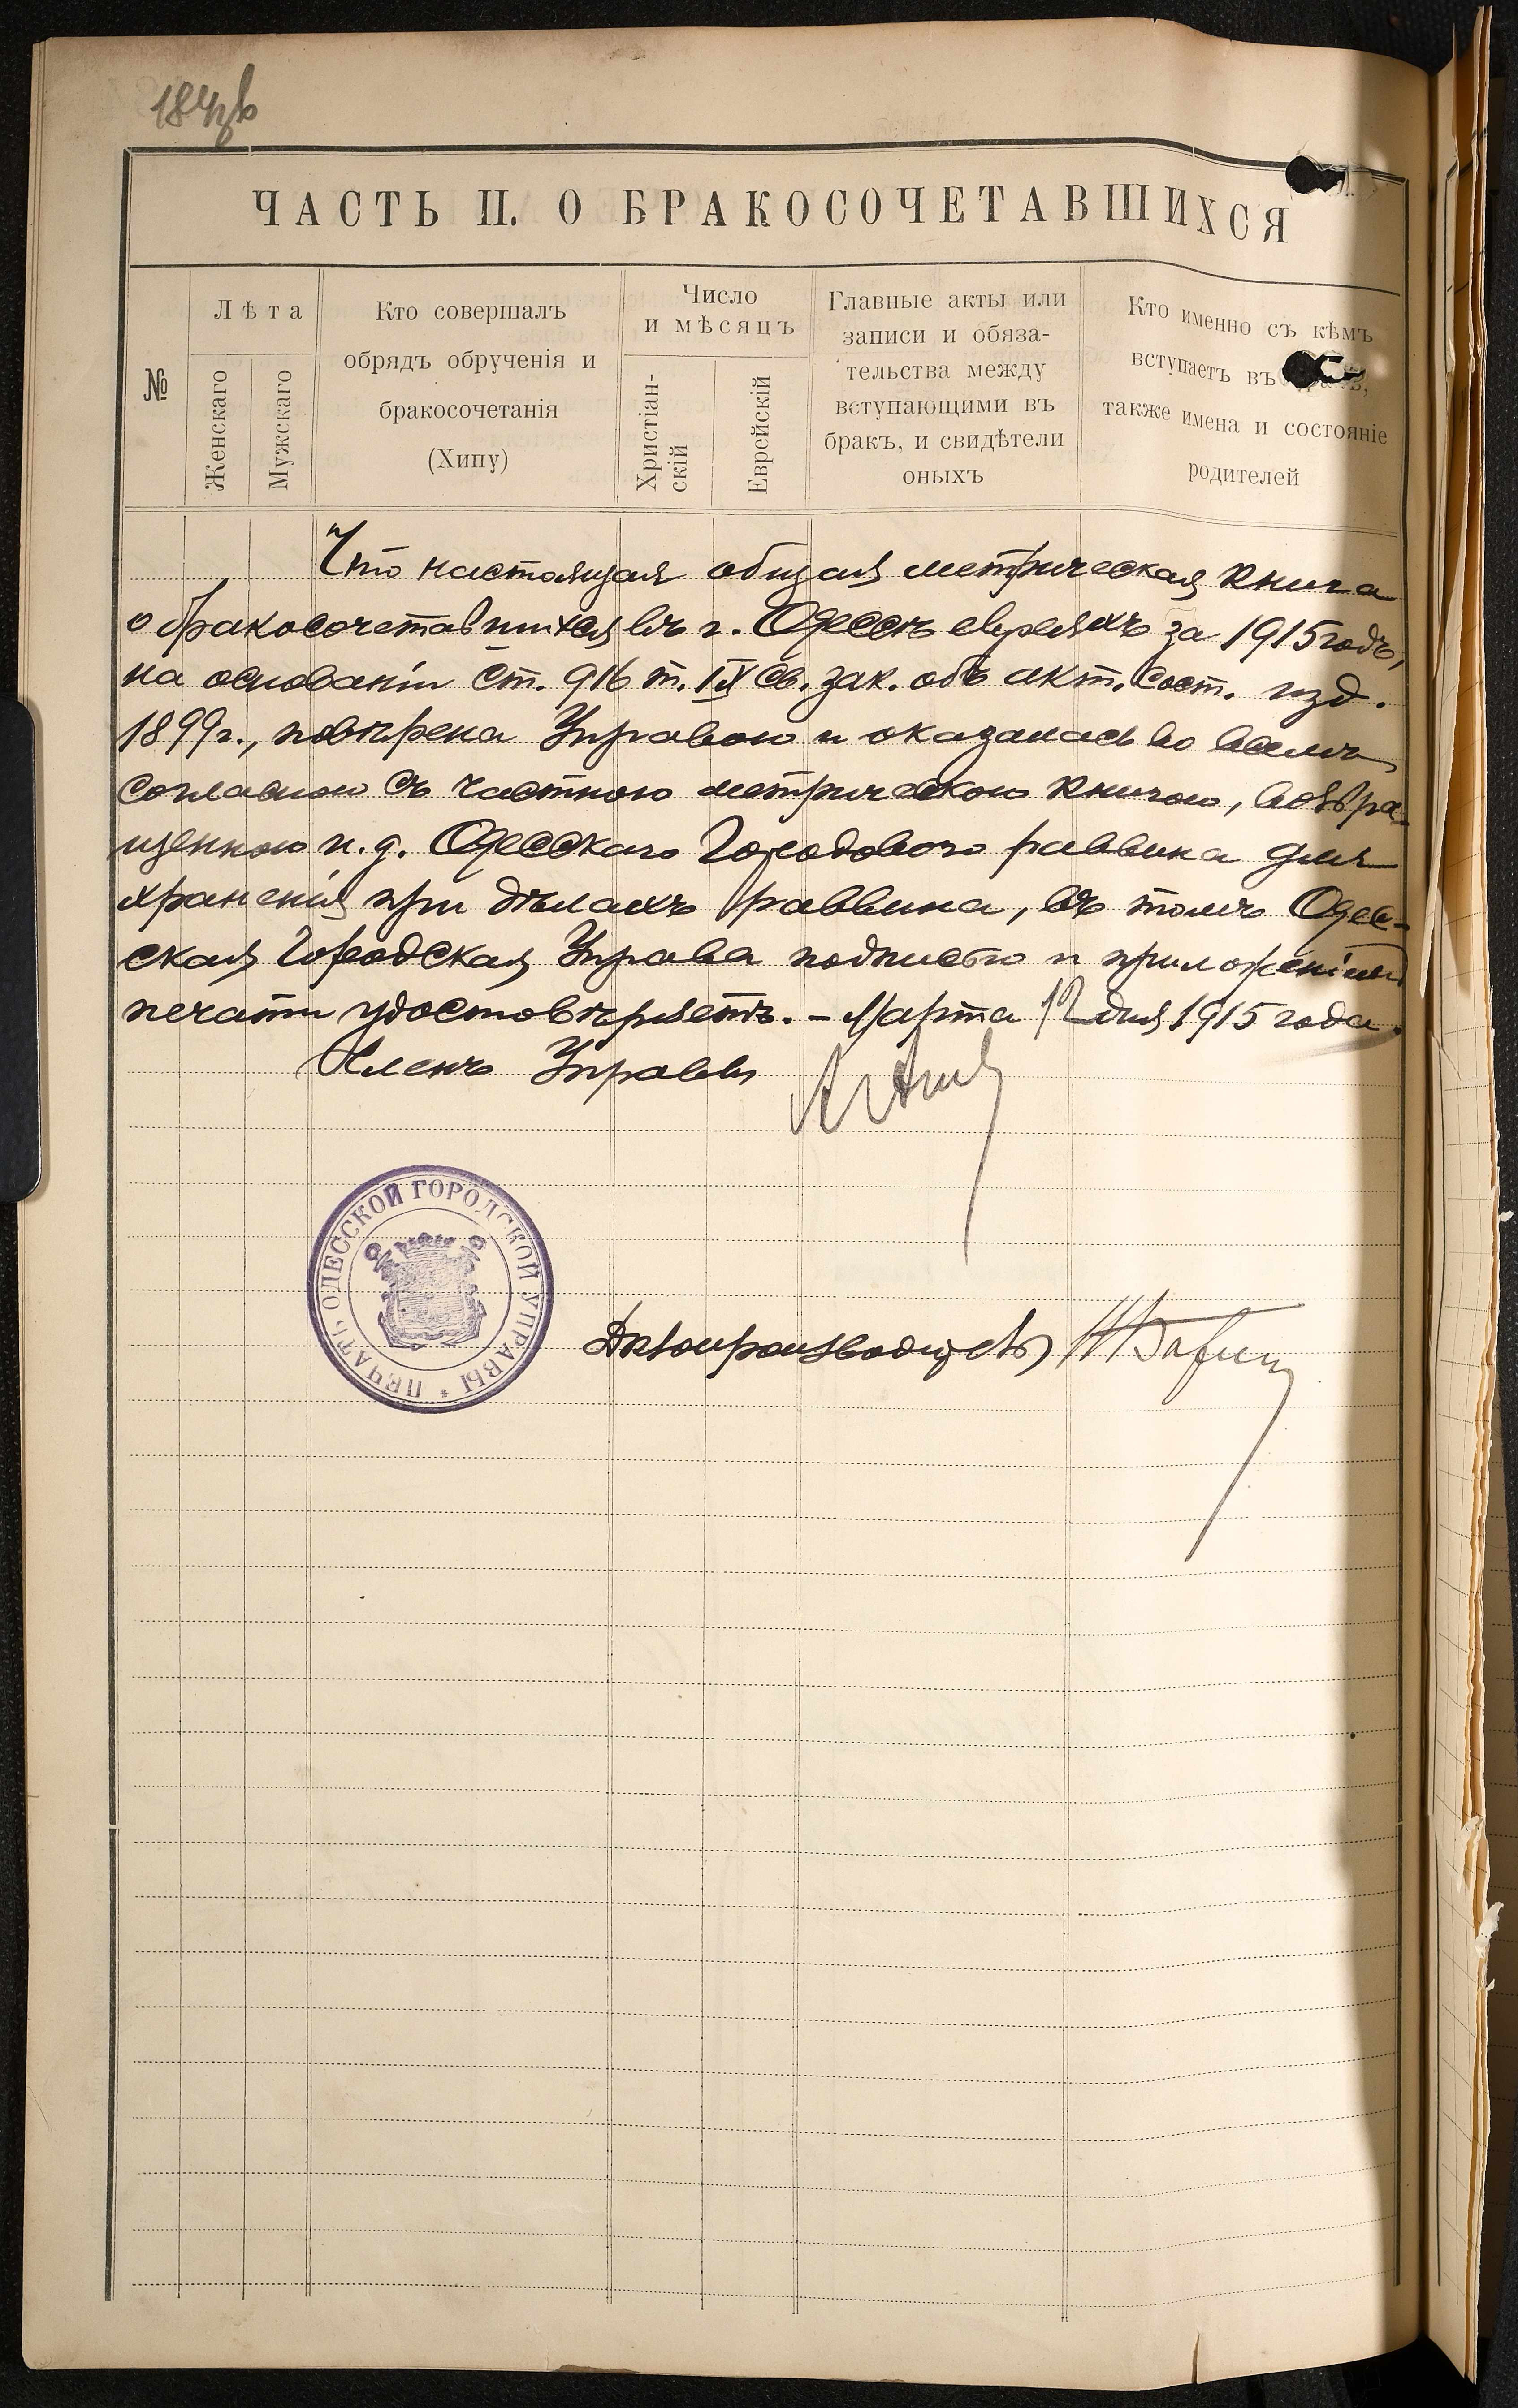 ЧАСТЬ II. О БРАКОСОЧЕТАВШИХСЯ
№
Лѣта
Женскаго
Мужскаго
Кто совершалъ
обрядъ обрученія и
бракосочетанія
(Хипу)
Число
и мѣсяцъ
Христіан-
скій
Еврейскій
Главные акты или
записи и обяза-
тельства между
вступающими въ
бракъ, и свидѣтели
оныхъ
Кто именно съ кѣмъ
вступаетъ въ
также имена и состояніе
родителей
Что настоящая общая метрическая книга
о бракосочетавшихся въ г. Одессѣ евреяхъ за 1915 годъ,
на основаніи ст. 916 т. IX Св. зак. объ акт. сост. изд.
1899 г., повѣрена Управою и оказалась во всемъ
согласною съ частною метрическою книгою, возвра-
щенною и. д. Одесскаго Городового раввина для
храненія при дѣлахъ раввина, въ томъ Одес-
ская Городская Управа подписью и приложеніемъ
печати удостовѣряетъ. – Марта 12 дня 1915 года.
Членъ Управы
ПЕЧАТЬ ОДЕССКОЙ ГОРОДСКОЙ УПРАВЫ *
Дѣлопроизводитель